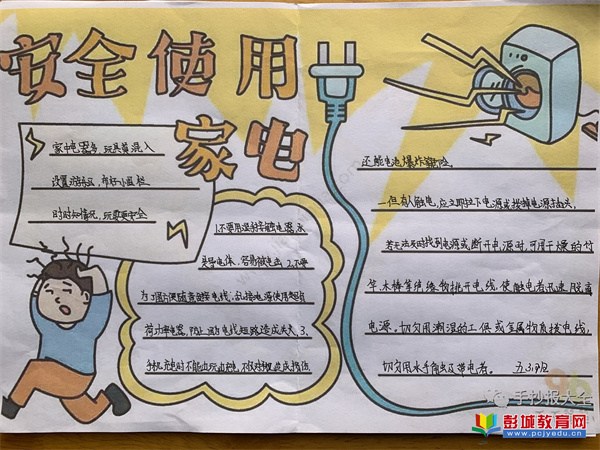 安全使用
家电
家中电器多,玩具莫混入
设置游玩区,布好小围栏
时时知情况,玩耍更安全
1.不要用湿手去碰电器,水
是导电体,容易被电击 2.不要
为了图方便随意搭接电线,乱接电源使用超负
荷功率电器,防止因为电线短路造成火灾 3.
手机充电时不能边玩边充电,
还能电池爆炸
一但有人触电,应立即拉下电源或拔掉电源插头,
若无法及时找到电源或断开电源时,可用干燥的竹
竿、木棒等绝缘物挑开电线,使触电者迅速脱离
电源。切勿用潮湿的工具或金属物直接电线,
切勿用水手触及带电者。
手抄报大全
彭城教育网
www.pcjyedu.cn